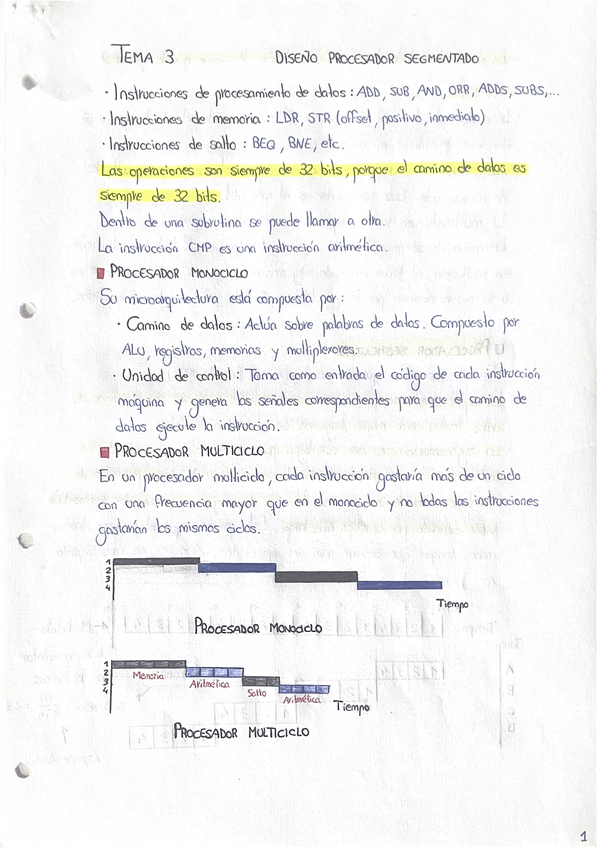 TEMA 3 DISEÑO PROCESADOR SEGMENTADO
· Instrucciones de procesamiento de datos : ADD, SUB, AND, ORR, ADDS, SUBS,...
· Instrucciones de memoria : LDR, STR (offset, positivo, inmediato)
· Instrucciones de salto : BEQ, BNE, etc.
Las operaciones son siempre de 32 bits, porque el camino de datos es
siempre de 32 bits.
Dentro de una subrutina se puede llamar a otra.
La instrucción CMP es una instrucción aritmética.
PROCESADOR MONOCICLO
Su microarquitectura está compuesta por :
· Camino de datos : Actúa sobre palabras de datos. Compuesto por
ALU, registros, memorias y multiplexores.
· Unidad de control : Toma como entrada el código de cada instrucción
máquina y genera las señales correspondientes para que el camino de
datos ejecute la instrucción.
PROCESADOR MULTICICLO
En un procesador multiciclo, cada instrucción gastaría más de un ciclo
con una frecuencia mayor que en el monociclo y no todas las instrucciones
gastarían los mismos ciclos.
1
2
3
4
Tiempo
PROCESADOR MONOCICLO
1
2
3
4
Memoria
Aritmética
Salto
Aritmética
Tiempo
PROCESADOR MULTICICLO
1